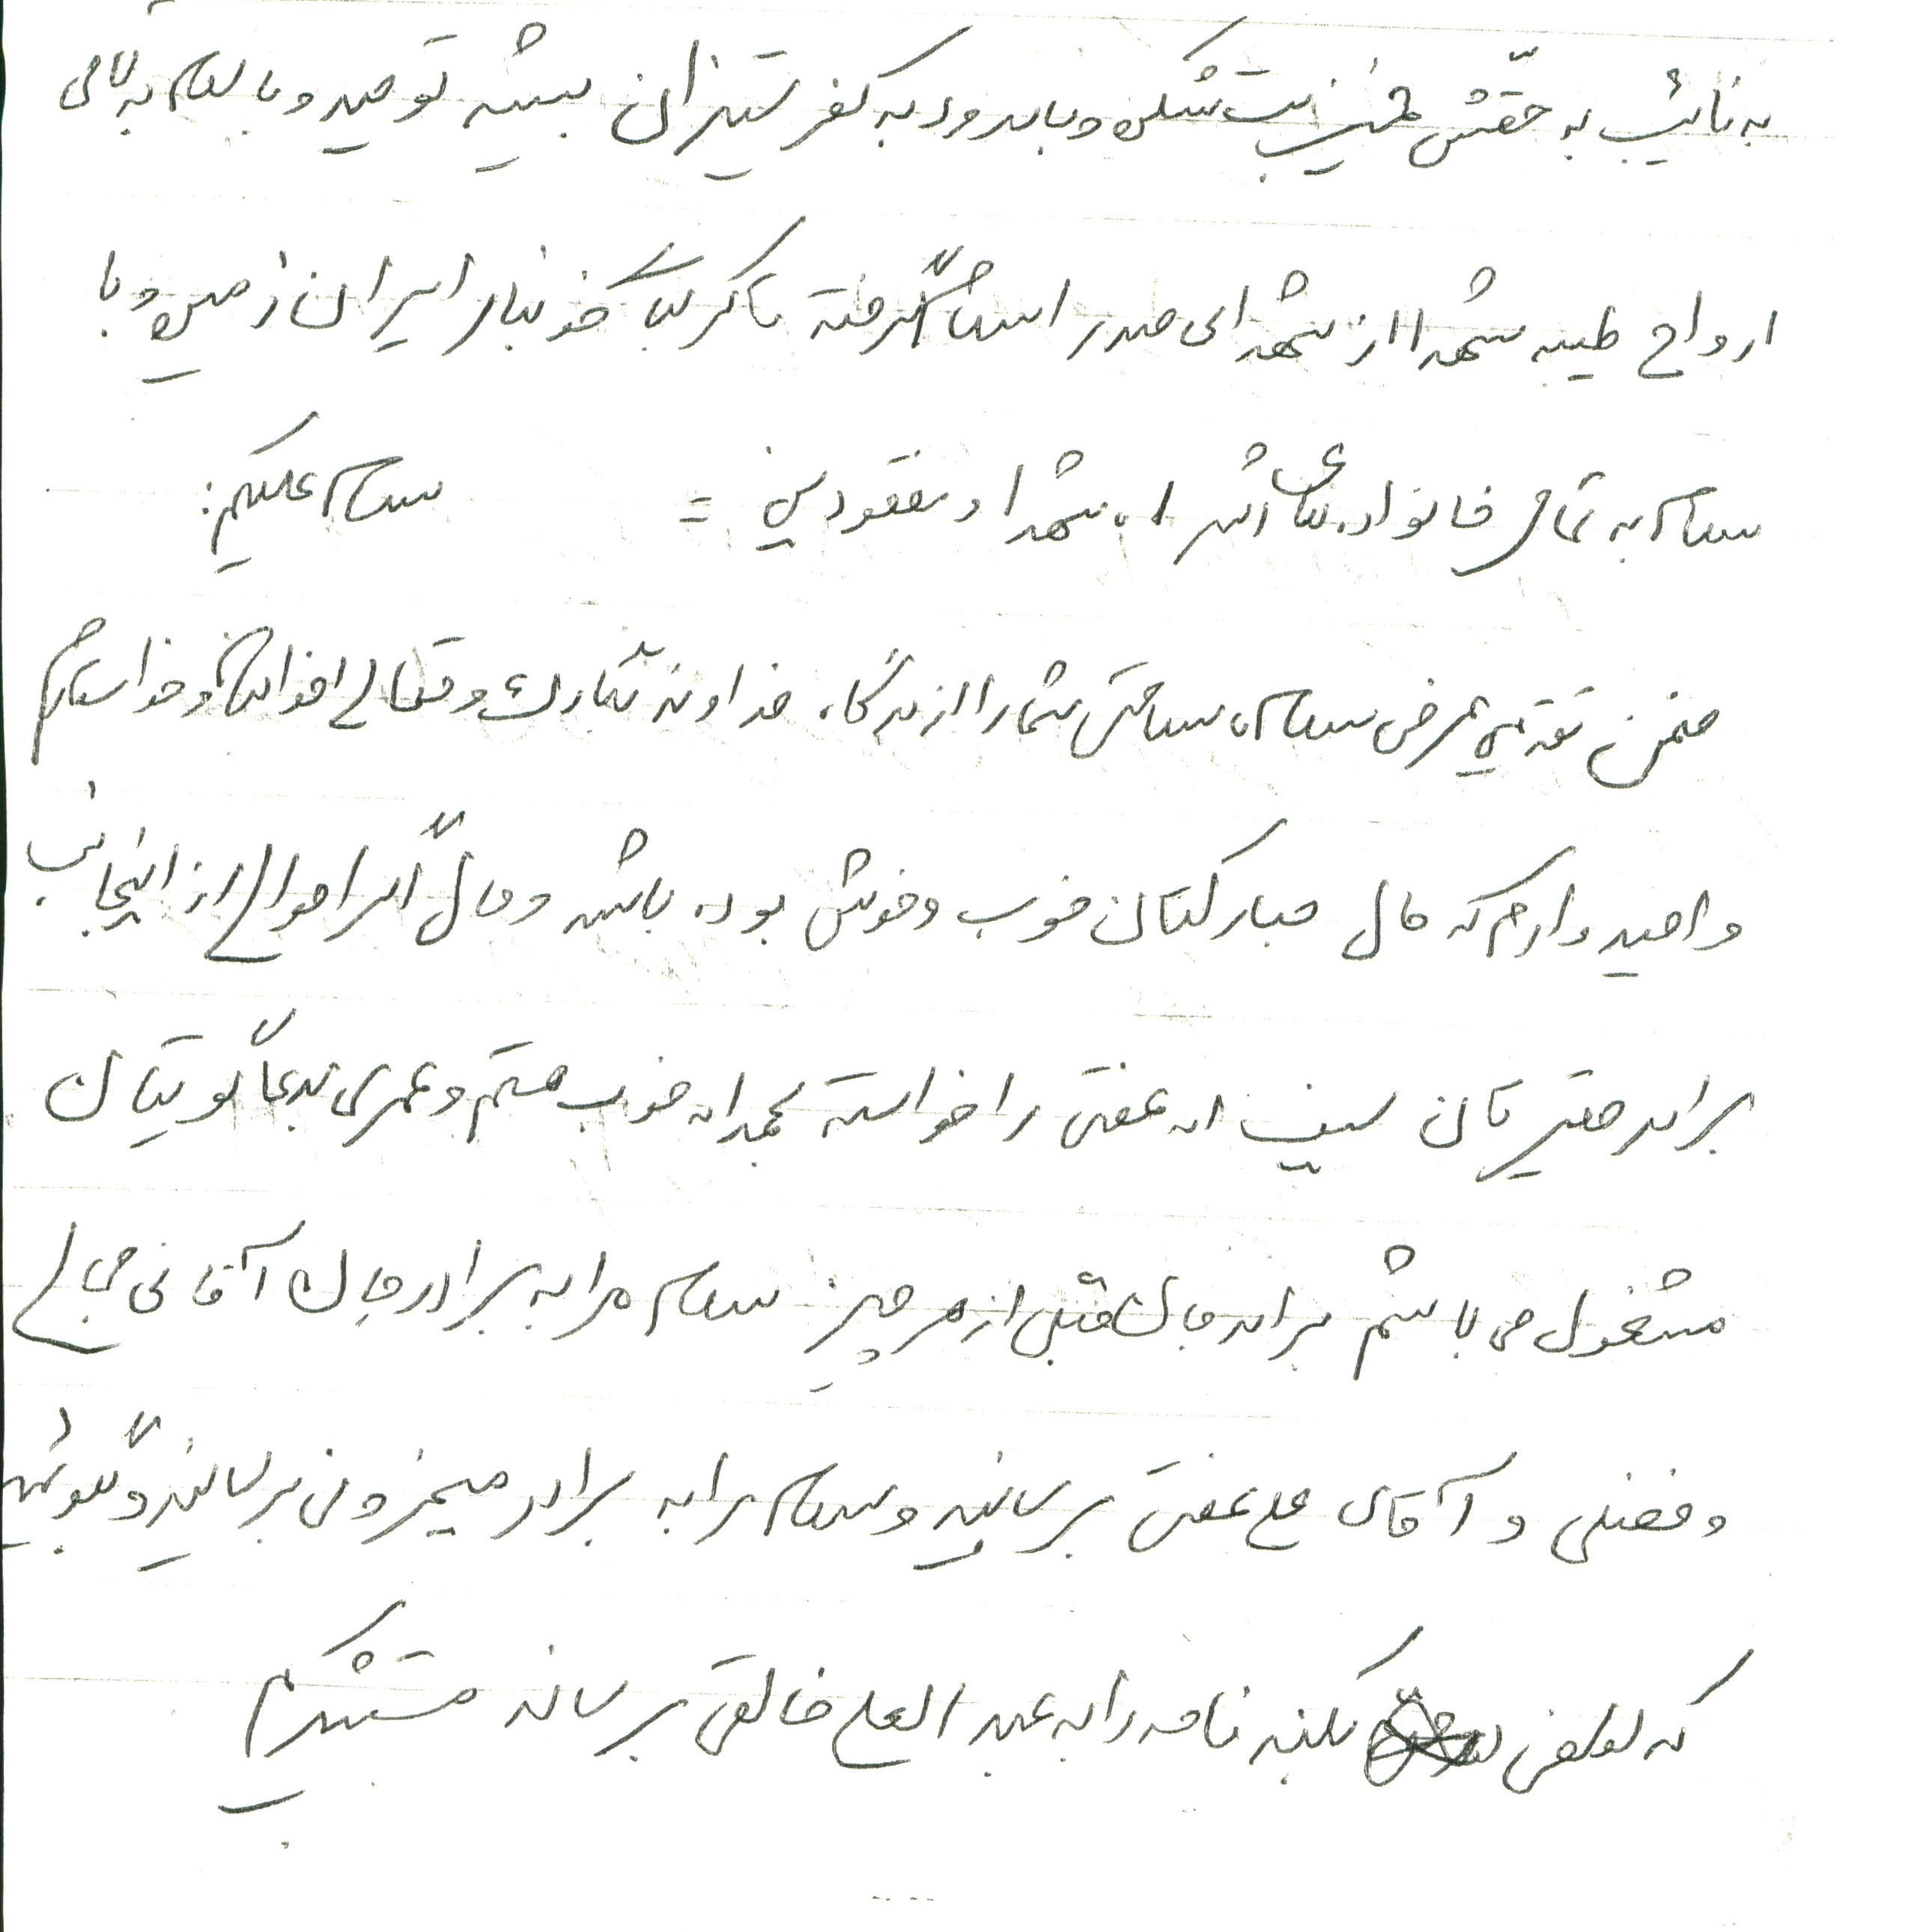 به نائب به حقش خمینی بت شکن و با درود به کفر ستیزان بیشه توحید و با سلام به تمامی
ارواح طیبه شهدا از شهدای صدر اسلام گرفته تا کربلای خونبار ایران زمین و با
سلام به تمامی خانواده های اسرا، شهدا و مفقودین = سلام علیکم:
ضمن تقدیم عرض سلام، سلامتی شما را از درگاه خداوند تبارک و تعالی خواهان و خواستارم
و امیدوارم که حال مبارکتان خوب و خوش بوده باشد و حال اگر احوالی از اینجانب
برادر حقیرتان سیف اله عفتی را خواسته بحمداله خوب هستم و عمری بدعاگوئیتان
مشغول می باشم برادر جان قبل از هر چیز سلام مرا به برادر جان آقا نی
و فضلی و آقای علی عفتی برسانید و سلام مرا به برادر برسانید و بگوئید
که لطفی بکند نامه را به عبدالعلی خالقی برساند متشکرم